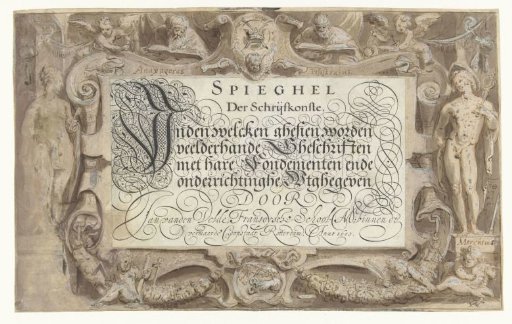 Anaxagoras
Pisistratus
SPIEGHEL
Der Schrijfkonste,
Inden welcken ghesien worden
veelderhande Gheschriften
met hare Fondementen ende
onderrichtinghe Wtghegeven
DOOR
Jan vanden Velde Fransoysche School
Rotterdam Anno
Mercurius